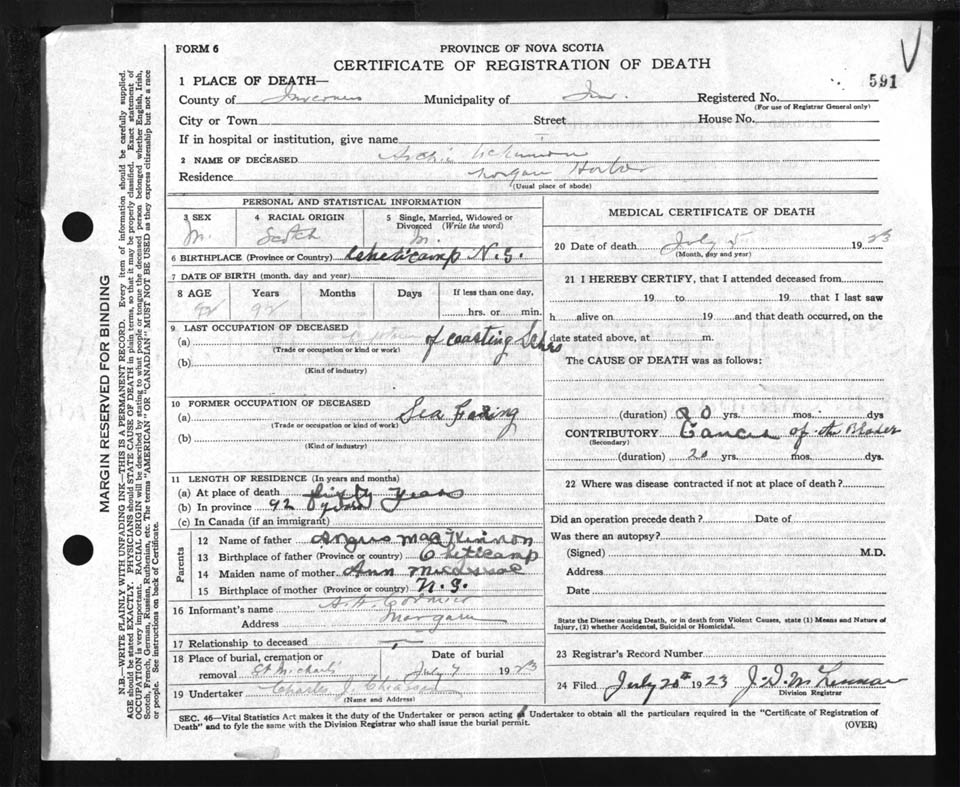 FORM 6
PROVINCE OF NOVA SCOTIA
CERTIFICATE OF REGISTRATION OF DEATH
591
1 PLACE OF DEATH—
County of Inverness Municipality of Inv. Registered No.
(For use of Registrar General only)
City or Town Street House No.
If in hospital or institution, give name
2 NAME OF DECEASED Archie McKinnon
Residence Margaree Harbor
(Usual place of abode)
PERSONAL AND STATISTICAL INFORMATION
3 SEX 4 RACIAL ORIGIN 5 Single, Married, Widowed or
Divorced (Write the word)
M. Scotch M.
6 BIRTHPLACE (Province or Country) Cheticamp N.S.
7 DATE OF BIRTH (month, day and year)
8 AGE Years Months Days If less than one day,
92 92 hrs. or min.
9 LAST OCCUPATION OF DECEASED
(a) of coasting Schrs
(Trade or occupation or kind or work)
(b)
(Kind of industry)
10 FORMER OCCUPATION OF DECEASED
(a) Sea Faring
(Trade or occupation or kind of work)
(b)
(Kind of industry)
11 LENGTH OF RESIDENCE (In years and months)
(a) At place of death years
(b) In province 92 years
(c) In Canada (if an immigrant)
Parents
12 Name of father Angus MacKinnon
13 Birthplace of father (Province or country) Cheticamp
14 Maiden name of mother Ann
15 Birthplace of mother (Province or country) N.S.
16 Informant's name A.H. Cormier
Address Margaree
17 Relationship to deceased
18 Place of burial, cremation or Date of burial
removal St Michaels July 7 1923
19 Undertaker Charles J. Chiasson
(Name and Address)
MEDICAL CERTIFICATE OF DEATH
20 Date of death July 5 1923
(Month, day and year)
21 I HEREBY CERTIFY, that I attended deceased from
19 to 19 that I last saw
h alive on 19 and that death occurred, on the
date stated above, at m.
The CAUSE OF DEATH was as follows:
(duration) 20 yrs. mos. dys
CONTRIBUTORY Cancer of the Blader
(Secondary)
(duration) 20 yrs. mos. dys.
22 Where was disease contracted if not at place of death?
Did an operation precede death? Date of
Was there an autopsy?
(Signed) M.D.
Address
Date
State the Disease causing Death, or in death from Violent Causes, state (1) Means and Nature of
Injury, (2) whether Accidental, Suicidal or Homicidal.
23 Registrar's Record Number
24 Filed July 20th 1923 J.D. McLennan
Division Registrar
SEC. 46—Vital Statistics Act makes it the duty of the Undertaker or person acting as Undertaker to obtain all the particulars required in the "Certificate of Registration of
Death" and to fyle the same with the Division Registrar who shall issue the burial permit.
(OVER)
MARGIN RESERVED FOR BINDING
N.B.—WRITE PLAINLY WITH UNFADING INK—THIS IS A PERMANENT RECORD. Every item of information should be carefully supplied.
AGE should be stated EXACTLY. PHYSICIANS should STATE CAUSE OF DEATH in plain terms, so that it may be properly classified. Exact statement of
OCCUPATION is very important. RACIAL ORIGIN will be described by stating to what people or tongue the deceased person belonged whether English, Irish,
Scotch, French, German, Russian, Ruthenian, etc. The terms "AMERICAN" OR "CANADIAN" MUST NOT BE USED as they express citizenship but not a race
or people. See instructions on back of Certificate.